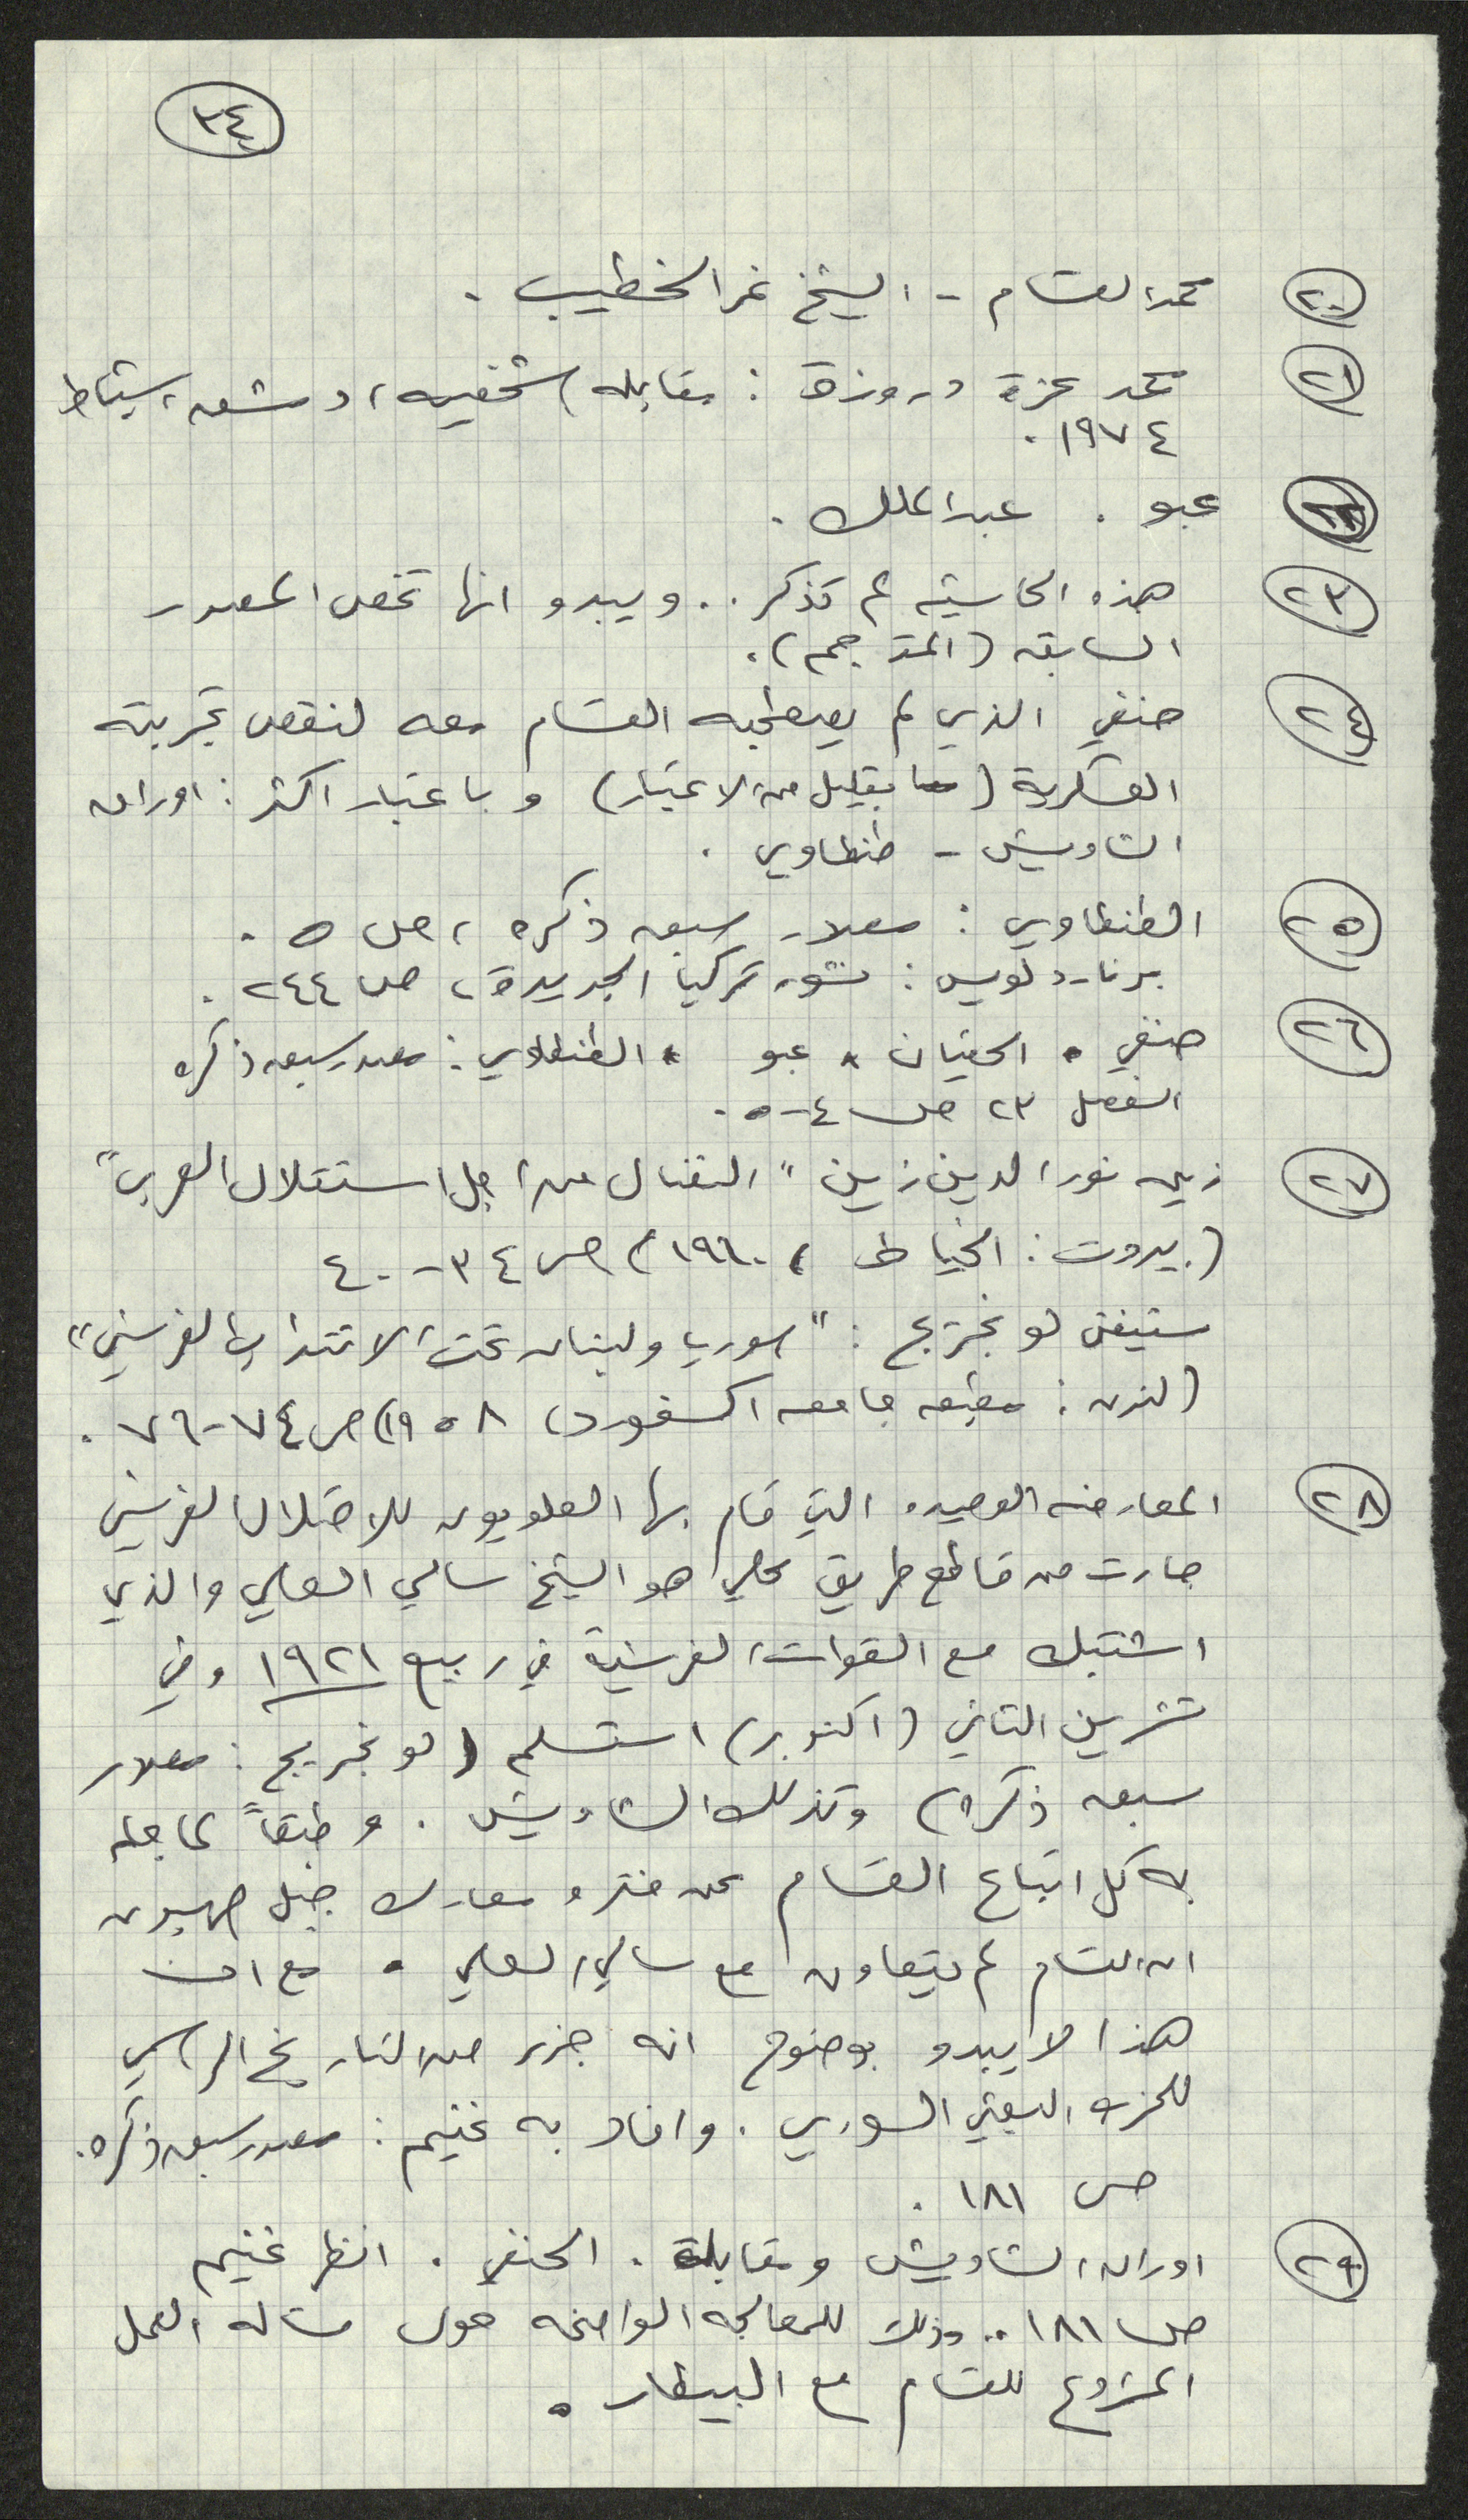 ٣٤
٢٠ محمد القسام - الشيخ نمر الخطيب .
٢١ محمد عزة دروزة : مقابله شخصيه ، دمشق ، شباط
١٩٧٤ .
٢٢ عبو . عبد الملك .
٢٣ هذه الحاشيه لم تذكر .. ويبدو انها تخص المصدر
السابق (المترجم) .
٢٤ حنفي الذي لم يصطحبه القسام معه لنقص تجربته
العسكرية ( بقليل من الاعتبار) وباعتبار اكثر : اوراق
الشاويش - طنطاوي .
٢٥ الطنطاوي : مصدر سبق ذكره ، ص ٥ .
برنارد لويس : نشوء تركيا الجديدة ، ص ٢٤٤ .
٢٦ حنفي . الحفيان . عبو . الطنطاوي : مصدر سبق ذكره
الفصل ٢٣ ص ٤-٥ .
٢٧ زين نور الدين زين " النضال من اجل استقلال العرب "
(بيروت : الخياط ، ١٩٦٠) ص ٣٤-٤٠
ستيفن لونجريج : " سوريا ولبنان تحت الانتداب الفرنسي "
(لندن : مطبعه جامعه اكسفورد ، ١٩٥٨) ص ٧٤-٧٦ .
٢٨ المعارضه الوحيده التي قام بها العلويون للاحتلال الفرنسي
جاءت من قاطع طريق محلي هو الشيخ سالي العلي والذي
اشتبك مع القوات الفرنسية في ربيع ١٩٢١ وفي
تشرين الثاني (اكتوبر) استسلم (لونجريج : مصدر
سبق ذكره) وكذلك الشاويش . وطبقاً لما
به كل اتباع القسام عن فتره معارك جبل صهيون
ان القسام لم يتعاون مع سالي العلي . مع ان
هذا لا يبدو بوضوح انه جزء من التاريخ الرسمي
للحزب البعثي السوري . وافاد به غنيم : مصدر سبق ذكره .
ص ١٨١ .
٢٩ اوراق الشاويش ومقابلة . الحنفي . انظر غنيم
ص ١٨١ .. وذلك للمعالجه الواضحه حول مسأله العمل
المشروع للقسام مع البيطار .